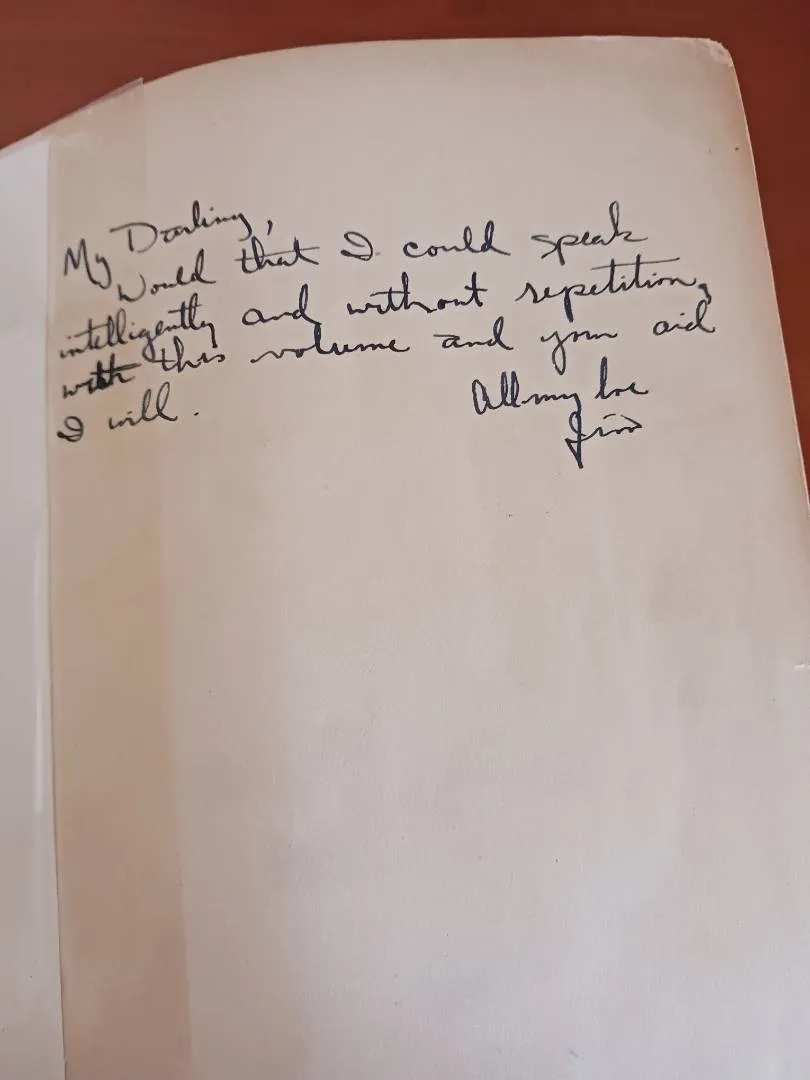 My Darling,
Would that I could speak
intelligently and without repetition,
with this volume and your aid
I will.
All my love
Jim